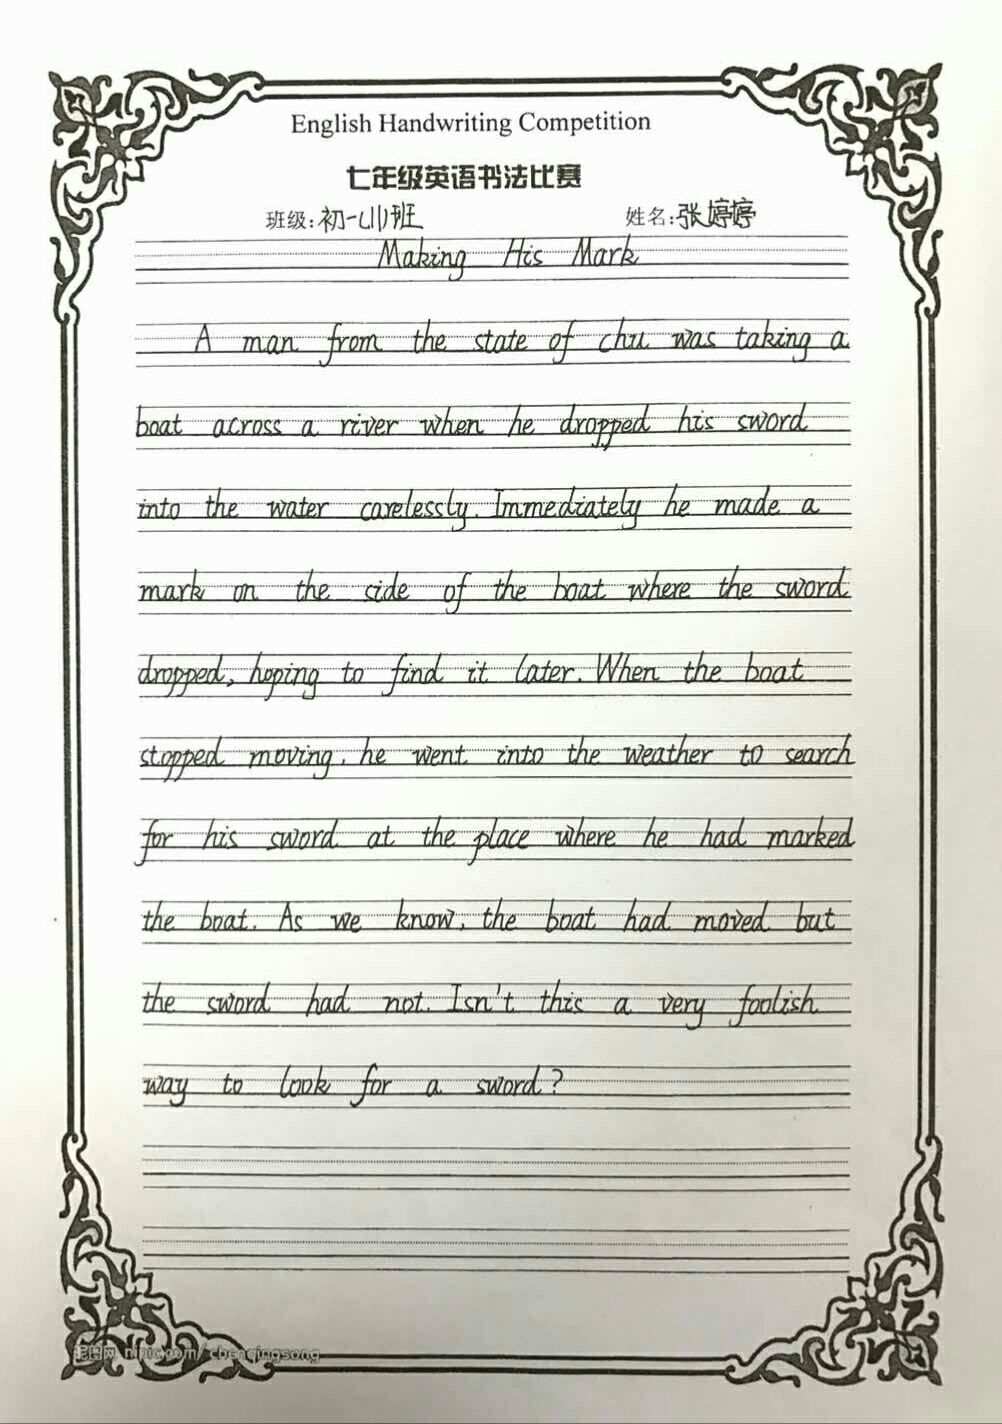 English Handwriting Competition
七年级英语书法比赛
班级:初一(1)班 姓名:张婷婷
Making His Mark
A man from the state of chu was taking a
boat across a river when he dropped his sword
into the water carelessly. Immediately he made a
mark on the side of the boat where the sword
dropped, hoping to find it later. When the boat
stopped moving, he went into the weather to search
for his sword at the place where he had marked
the boat. As we know, the boat had moved but
the sword had not. Isn't this a very foolish
way to look for a sword?
昵图网 nipic.com/chenqingsong